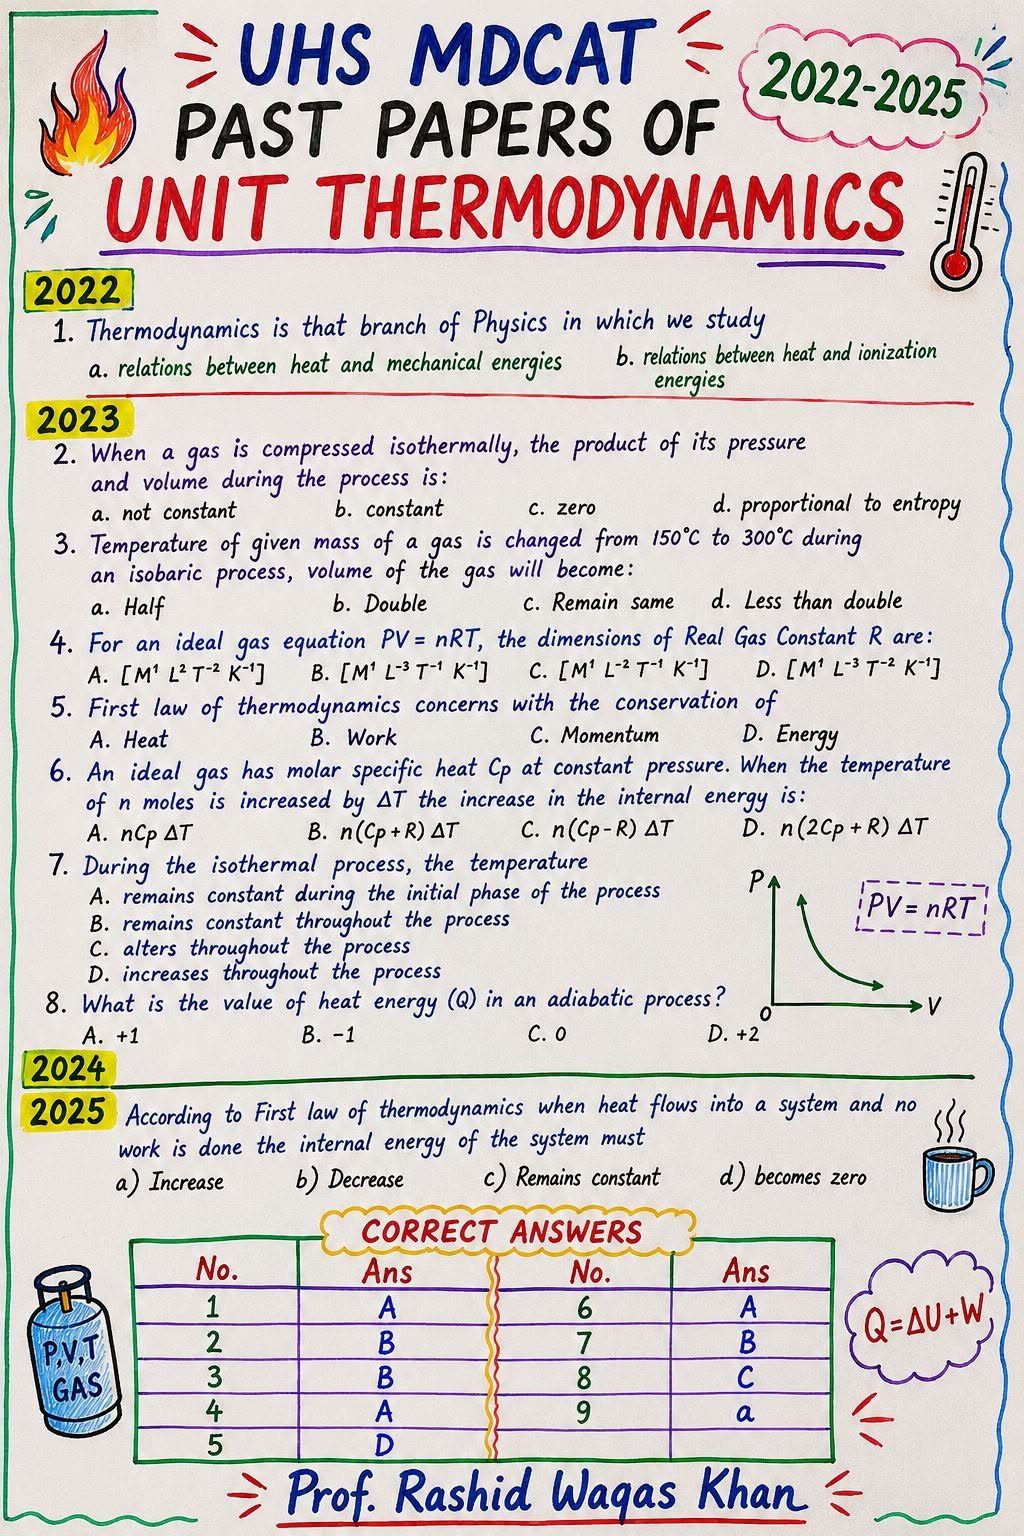 UHS MDCAT
2022-2025
PAST PAPERS OF
UNIT THERMODYNAMICS
2022
1. Thermodynamics is that branch of Physics in which we study
a. relations between heat and mechanical energies b. relations between heat and ionization
energies
2023
2. When a gas is compressed isothermally, the product of its pressure
and volume during the process is:
a. not constant b. constant c. zero d. proportional to entropy
3. Temperature of given mass of a gas is changed from 150°C to 300°C during
an isobaric process, volume of the gas will become:
a. Half b. Double c. Remain same d. Less than double
4. For an ideal gas equation PV = nRT, the dimensions of Real Gas Constant R are:
A. [M¹ L² T⁻² K⁻¹] B. [M¹ L⁻³ T⁻¹ K⁻¹] C. [M¹ L⁻² T⁻¹ K⁻¹] D. [M¹ L⁻³ T⁻² K⁻¹]
5. First law of thermodynamics concerns with the conservation of
A. Heat B. Work C. Momentum D. Energy
6. An ideal gas has molar specific heat Cp at constant pressure. When the temperature
of n moles is increased by ΔT the increase in the internal energy is:
A. nCp ΔT B. n(Cp+R) ΔT C. n(Cp-R) ΔT D. n(2Cp+R) ΔT
7. During the isothermal process, the temperature
A. remains constant during the initial phase of the process
B. remains constant throughout the process
C. alters throughout the process
D. increases throughout the process
P
PV = nRT
O
V
8. What is the value of heat energy (Q) in an adiabatic process?
A. +1 B. -1 C. 0 D. +2
2024
2025 According to First law of thermodynamics when heat flows into a system and no
work is done the internal energy of the system must
a) Increase b) Decrease c) Remains constant d) becomes zero
CORRECT ANSWERS
No. Ans No. Ans
1 A 6 A
2 B 7 B
3 B 8 C
4 A 9 a
5 D
P,V,T
GAS
Q=ΔU+W
Prof. Rashid Waqas Khan